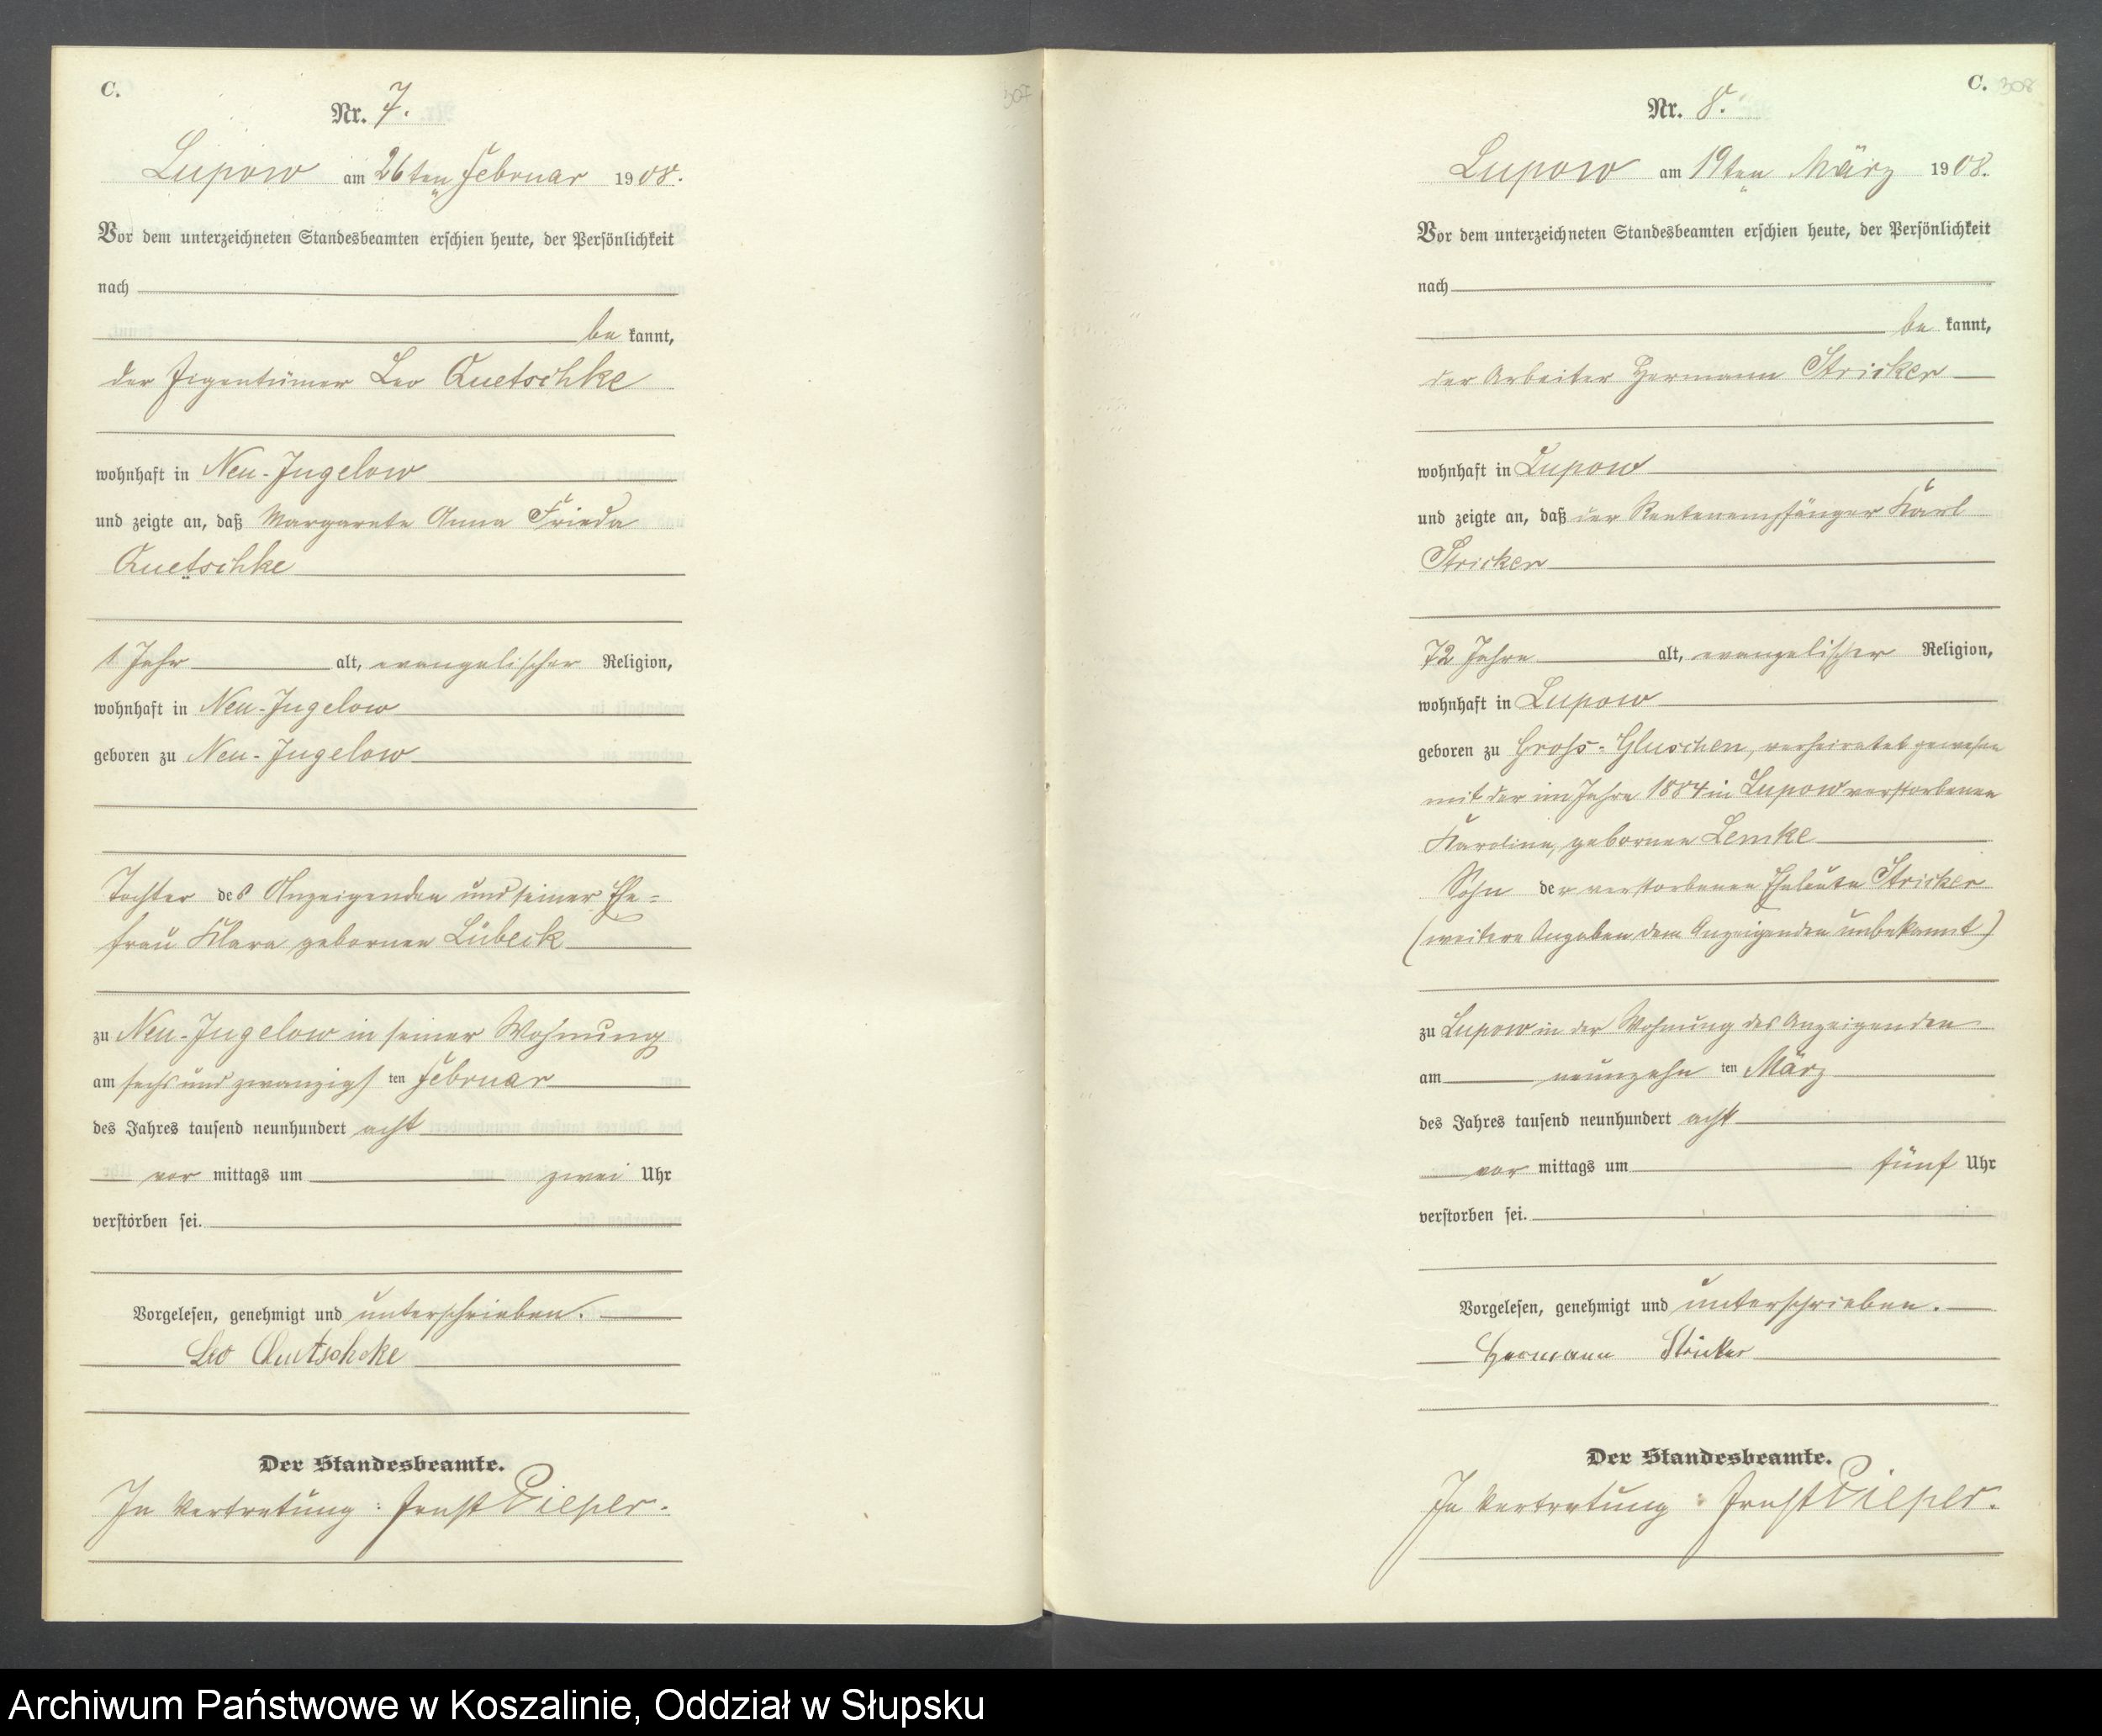 C.
307
Nr. 7.
Lupow am 26ten Februar 1908.
Vor dem unterzeichneten Standesbeamten erschien heute, der Persönlichkeit
nach
be kannt,
der Eigentümer Leo Quetschke
wohnhaft in Neu-Jugelow
und zeigte an, daß Margarete Anna Frieda
Quetschke
1 Jahr alt, evangelischer Religion,
wohnhaft in Neu-Jugelow
geboren zu Neu-Jugelow
Tochter des Anzeigenden und seiner Ehe=
frau Klara geborenen Lübeck
zu Neu-Jugelow in seiner Wohnung
am sechs und zwanzigs ten Februar
des Jahres tausend neunhundert acht
vor mittags um zwei Uhr
verstorben sei.
Vorgelesen, genehmigt und unterschrieben.
Leo Quetschke
Der Standesbeamte.
In Vertretung: Ernst Pieper.
C.
308
Nr. 8.
Lupow am 19ten März 1908.
Vor dem unterzeichneten Standesbeamten erschien heute, der Persönlichkeit
nach
be kannt,
der Arbeiter Hermann Stricker
wohnhaft in Lupow
und zeigte an, daß der Rentenempfänger Karl
Stricker
72 Jahre alt, evangelischer Religion,
wohnhaft in Lupow
geboren zu Groß-Gluschen, verheiratet gewesen
mit der im Jahre 1884 in Lupow verstorbenen
Karoline, geborenen Lemke
Sohn der verstorbenen Eheleute Stricker
(weitere Angaben dem Anzeigenden unbekannt)
zu Lupow in der Wohnung des Anzeigenden
am neunzehn ten März
des Jahres tausend neunhundert acht
vor mittags um fünf Uhr
verstorben sei.
Vorgelesen, genehmigt und unterschrieben.
Hermann Stricker
Der Standesbeamte.
In Vertretung: Ernst Pieper.
Archiwum Państwowe w Koszalinie, Oddział w Słupsku